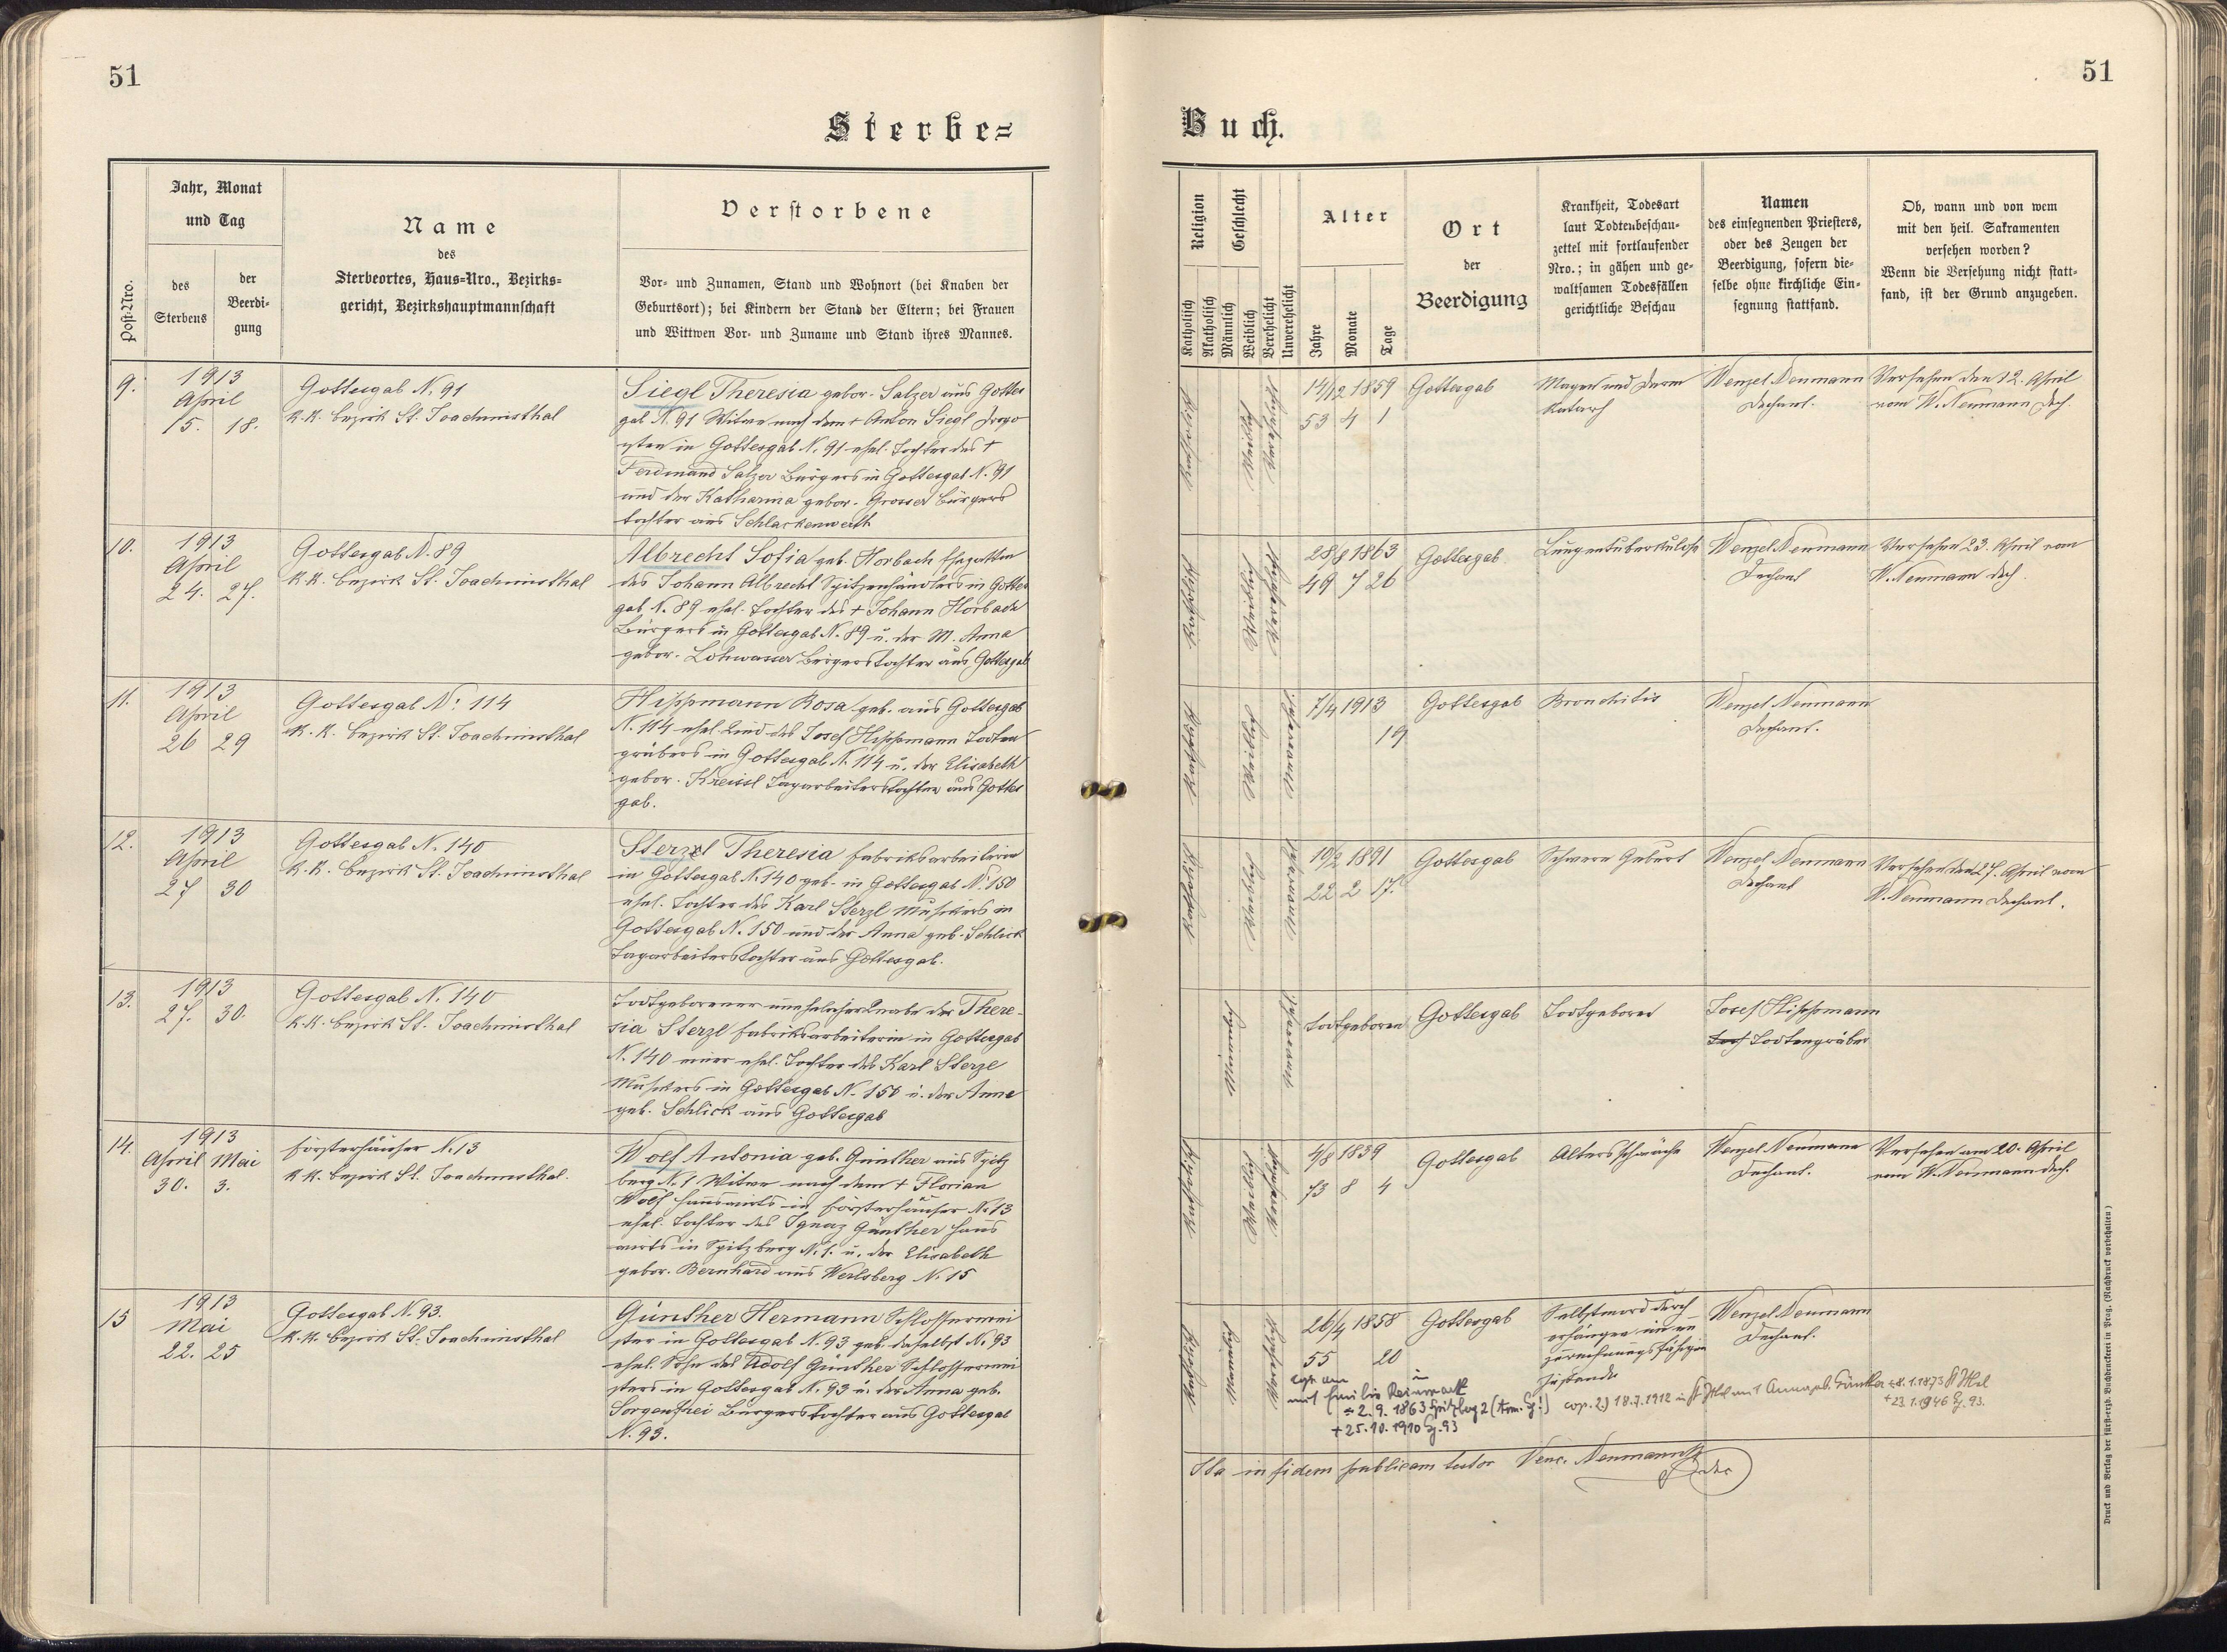 51
51
Sterbe=
Buch.
Post-Nro.
Jahr, Monat
und Tag
des
Sterbens
der
Beerdi-
gung
Name
des
Sterbeortes, Haus=Nro., Bezirks=
gericht, Bezirkshauptmannschaft
Verstorbene
Vor- und Zunamen, Stand und Wohnort (bei Knaben der
Geburtsort); bei Kindern der Stand der Eltern; bei Frauen
und Wittwen Vor- und Zuname und Stand ihres Mannes.
Religion
Katholisch
Akatholisch
Geschlecht
Männlich
Weiblich
Verehelicht
Unverehelicht
Alter
Jahre
Monate
Tage
Ort
der
Beerdigung
Krankheit, Todesart
laut Todtenbeschau-
zettel mit fortlaufender
Nro.; in gähen und ge-
waltsamen Todesfällen
gerichtliche Beschau
Namen
des einsegnenden Priesters,
oder des Zeugen der
Beerdigung, sofern die-
selbe ohne kirchliche Ein-
segnung stattfand.
Ob, wann und von wem
mit den heil. Sakramenten
versehen worden?
Wenn die Versehung nicht statt-
fand, ist der Grund anzugeben.
9.
1913
April
15. 18.
Gottesgab N. 91
K.K. Bezirk St. Joachimsthal
Siegl Theresia gebor. Salzer aus Gottes
gab N. 91 Witwe nach dem + Anton Siegl
in Gottesgab N. 91 ehel. Tochter des +
Ferdinand Salzer Bürgers in Gottesgab N. 91
und der Katharina gebor. Grosser Bürgers
tochter aus Schlackenwerth
Katholisch
Weiblich
Verehelicht
14/12 1859
53 4 1
Gottesgab
Magen und Darm
Katarh
Wenzel Neumann
Dechant.
Versehen den 12. April
vom W. Neumann Dech.
10.
1913
April
24. 27.
Gottesgab N. 89
K.K. Bezirk St. Joachimsthal
Albrecht Sofia geb. Horbach Ehegattin
des Johann Albrecht Spitzenhändlers in Gottes
gab N. 89 ehel. Tochter des + Johann Horbach
Bürgers in Gottesgab N. 89 u. der M. Anna
gebor. Lohwasser Bürgerstochter aus Gottesgab
Katholisch
Weiblich
Verehelicht
28/8 1863
49 7 26
Gottesgab
Lungentuberkulose
Wenzel Neumann
Dechant
Versehen 23. April vom
W. Neumann Dech.
11.
1913
April
26 29
Gottesgab N. 114
K.K. Bezirk St. Joachimsthal
Hippmann Rosa geb. aus Gottesgab
N. 114 ehel. Kind des Josef Hippmann Todten
gräbers in Gottesgab N. 114 u. der Elisabeth
gebor. Kreissl Tagarbeiterstochter aus Gottes
gab.
Katholisch
Weiblich
Unverehel.
7/4 1913
19
Gottesgab
Bronchitis
Wenzel Neumann
Dechant.
12.
1913
April
27 30
Gottesgab N. 140
K.K. Bezirk St. Joachimsthal
Sterzl Theresia Fabriksarbeiterin
in Gottesgab N. 140 geb. in Gottesgab N. 150
ehel. Tochter des Karl Sterzl Musikers in
Gottesgab N. 150 und der Anna geb. Schlick
Tagarbeiterstochter aus Gottesgab.
Katholisch
Weiblich
Unverehel.
10/2 1891
22 2 17.
Gottesgab
Schwere Geburt
Wenzel Neumann
Dechant
Versehen den 27. April vom
W. Neumann Dechant.
13.
1913
27. 30.
Gottesgab N. 140
K.K. Bezirk St. Joachimsthal
Todtgeborener unehelicher Knabe der There-
sia Sterzl Fabriksarbeiterin in Gottesgab
N. 140 einer ehel. Tochter des Karl Sterzl
Musikers in Gottesgab N. 150 u. der Anna
geb. Schlick aus Gottesgab
Männlich
Unverehel.
Todtgeboren
Gottesgab
Todtgeboren
Josef Hippmann
Todtengräber
14.
1913
April Mai
30. 3.
Försterhäuser N. 13
K.K. Bezirk St. Joachimsthal.
Wolf Antonia geb. Günther aus Spitz
berg N. 1 Witwe nach dem + Florian
Wolf Hauswirts in Försterhäuser N. 13
ehel. Tochter des Ignaz Günther Haus
wirts in Spitzberg N. 1. u. der Elisabeth
gebor. Bernhard aus Werlsberg N. 15
Katholisch
Weiblich
Verehelicht
4/8 1839
73 8 4
Gottesgab
Altersschwäche
Wenzel Neumann
Dechant.
Versehen am 20. April
vom W. Neumann Dech.
15
1913
Mai
22. 25
Gottesgab N. 93.
K.K. Bezirk St. Joachimsthal
Günther Hermann Schlossermei
ster in Gottesgab N. 93 geb. daselbst N. 93
ehel. Sohn des Adolf Günther Schlossermei
sters in Gottesgab N. 93 u. der Anna geb.
Sorgenfrei Bürgerstochter aus Gottesgab
N. 93.
Katholisch
Männlich
Verehelicht
26/4 1858
55 20
Gottesgab
Selbstmord durch
erhängen im un
zurechnungsfähigen
Zustande
Wenzel Neumann
Dechant.
cop. am in
mit Emilie Reinwart
2. 9. 1863 Spitzbg 2
+ 25. 10. 1910 Gg. 93
cop. 2) 18.7.1912 in St. Jthal mit Anna geb. Günther 8.1.1873 St Jthal
+ 23.1.1946 Gg. 93.
Ita in fidem publicam testor Venc. Neumann
Druck und Verlag der fürst-erzb. Buchdruckerei in Prag. (Nachdruck vorbehalten)